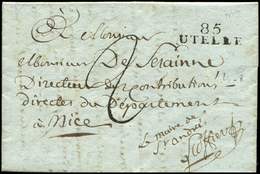 A Monsieur
85
UTELLE
Monsieur De
Directeur des contributions
directes du Département
à Nice
2
le maire de
St andré